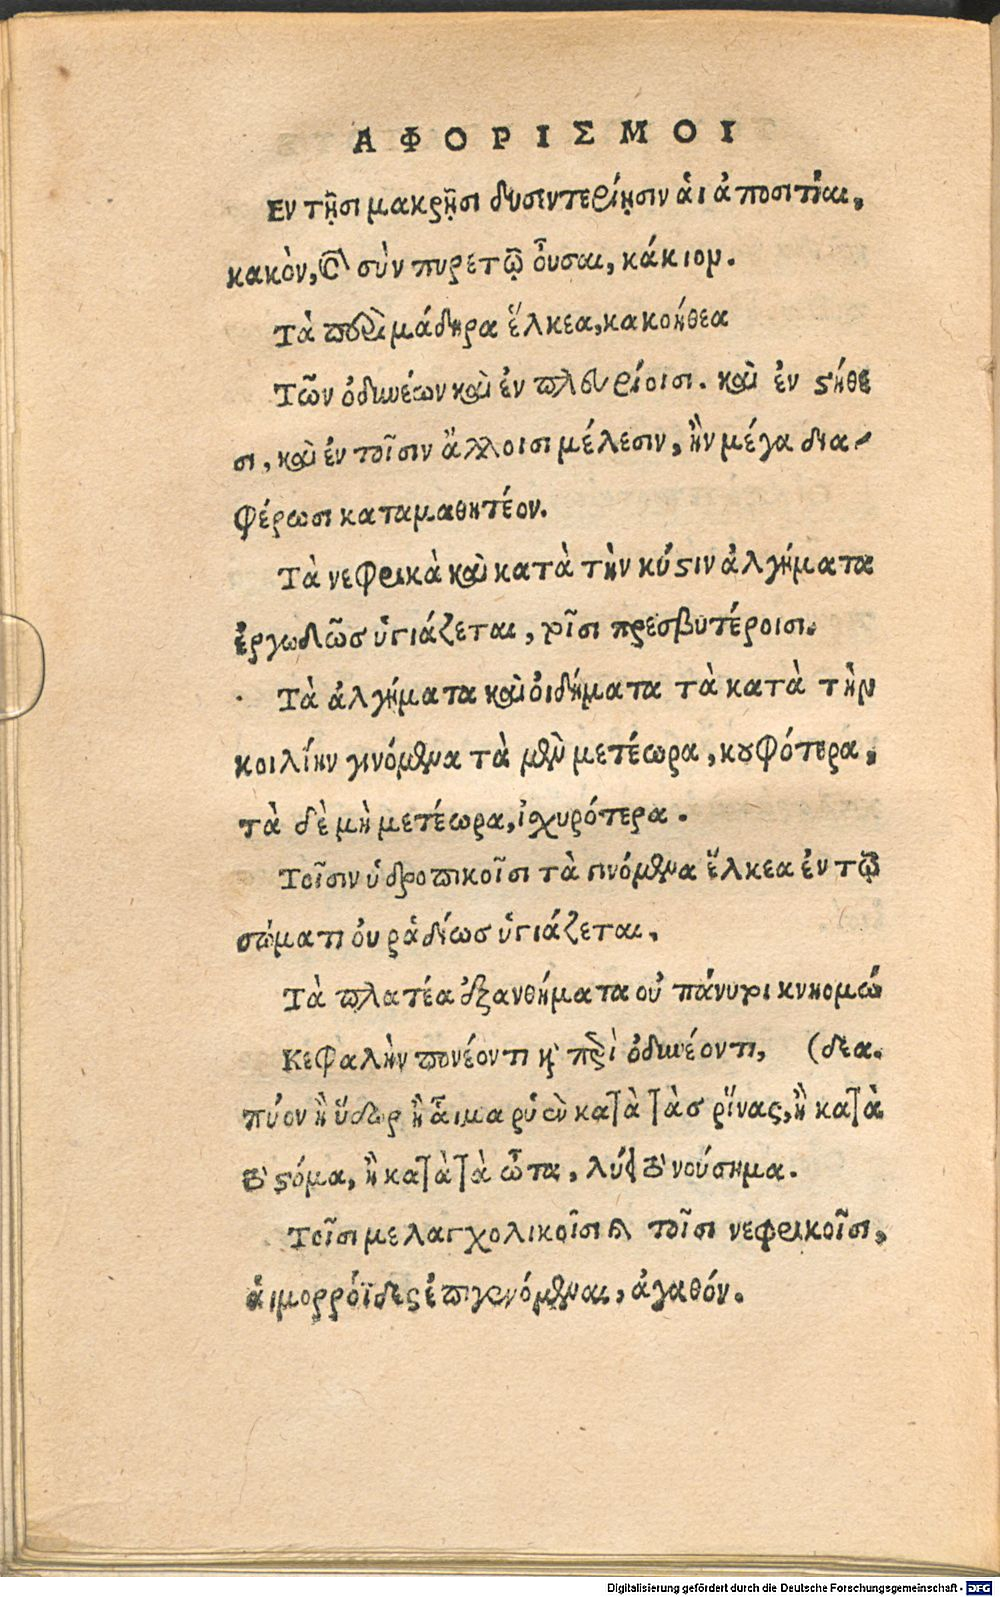 ΑΦΟΡΙΣΜΟΙ
Εν τῇσι μακρῇσι δυσιντερίῃσιν ἁι ἀποσιτίαι,
κακὸν, καὶ σὺν πυρετῷ ὀυσαι, κάκιον.
Τὰ περιμάδηρα ἕλκεα, κακοήθεα
Τῶν ὀδυνέων καὶ ἐν πλευρίοισι. καὶ ἐν στήθε
σι, καὶ ἐν τοῖσιν ἄλλοισι μέλεσιν, ἢν μέγα δια-
φέρωσι καταμαθητέον.
Τὰ νεφρικὰ καὶ κατὰ τὴν κύστιν ἀλγήματα
ἐργωδῶσ ὑγιάζεται, τοῖσι πρεσβυτέροισι.
Τὰ ἀλγήματα καὶ οἰδήματα τὰ κατὰ τὴν
κοιλίην γινόμενα τὰ μὲν μετέωρα, κουφότερα,
τὰ δὲ μὴ μετέωρα, ἰσχυρότερα.
Τοῖσιν ὑδροπικοῖσι τὰ γινόμενα ἕλκεα ἐν τῷ
σώματι ὀυ ῥαδίωσ ὑγιάζεται.
Τὰ πλατέα ἐξανθήματα οὐ πάνυ τι κνησμώ
Κεφαλὴν πονέοντι καὶ περὶ ὀδυνέοντι, (δεα.
πύον ἢ ὕδωρ ἢ ἇιμα ῥυὲν κατὰ τὰσ ῥῖνας, ἢ κατὰ
τὸ στόμα, ἢ κατὰ τὰ ὦτα, λύει τὸ νούσημα.
Τοῖσι μελαγχολικοῖσι καὶ τοῖσι νεφρικοῖσι,
ἁιμορροΐδες ἐπιγενόμεναι, ἀγαθόν.
Digitalisierung gefördert durch die Deutsche Forschungsgemeinschaft - DFG